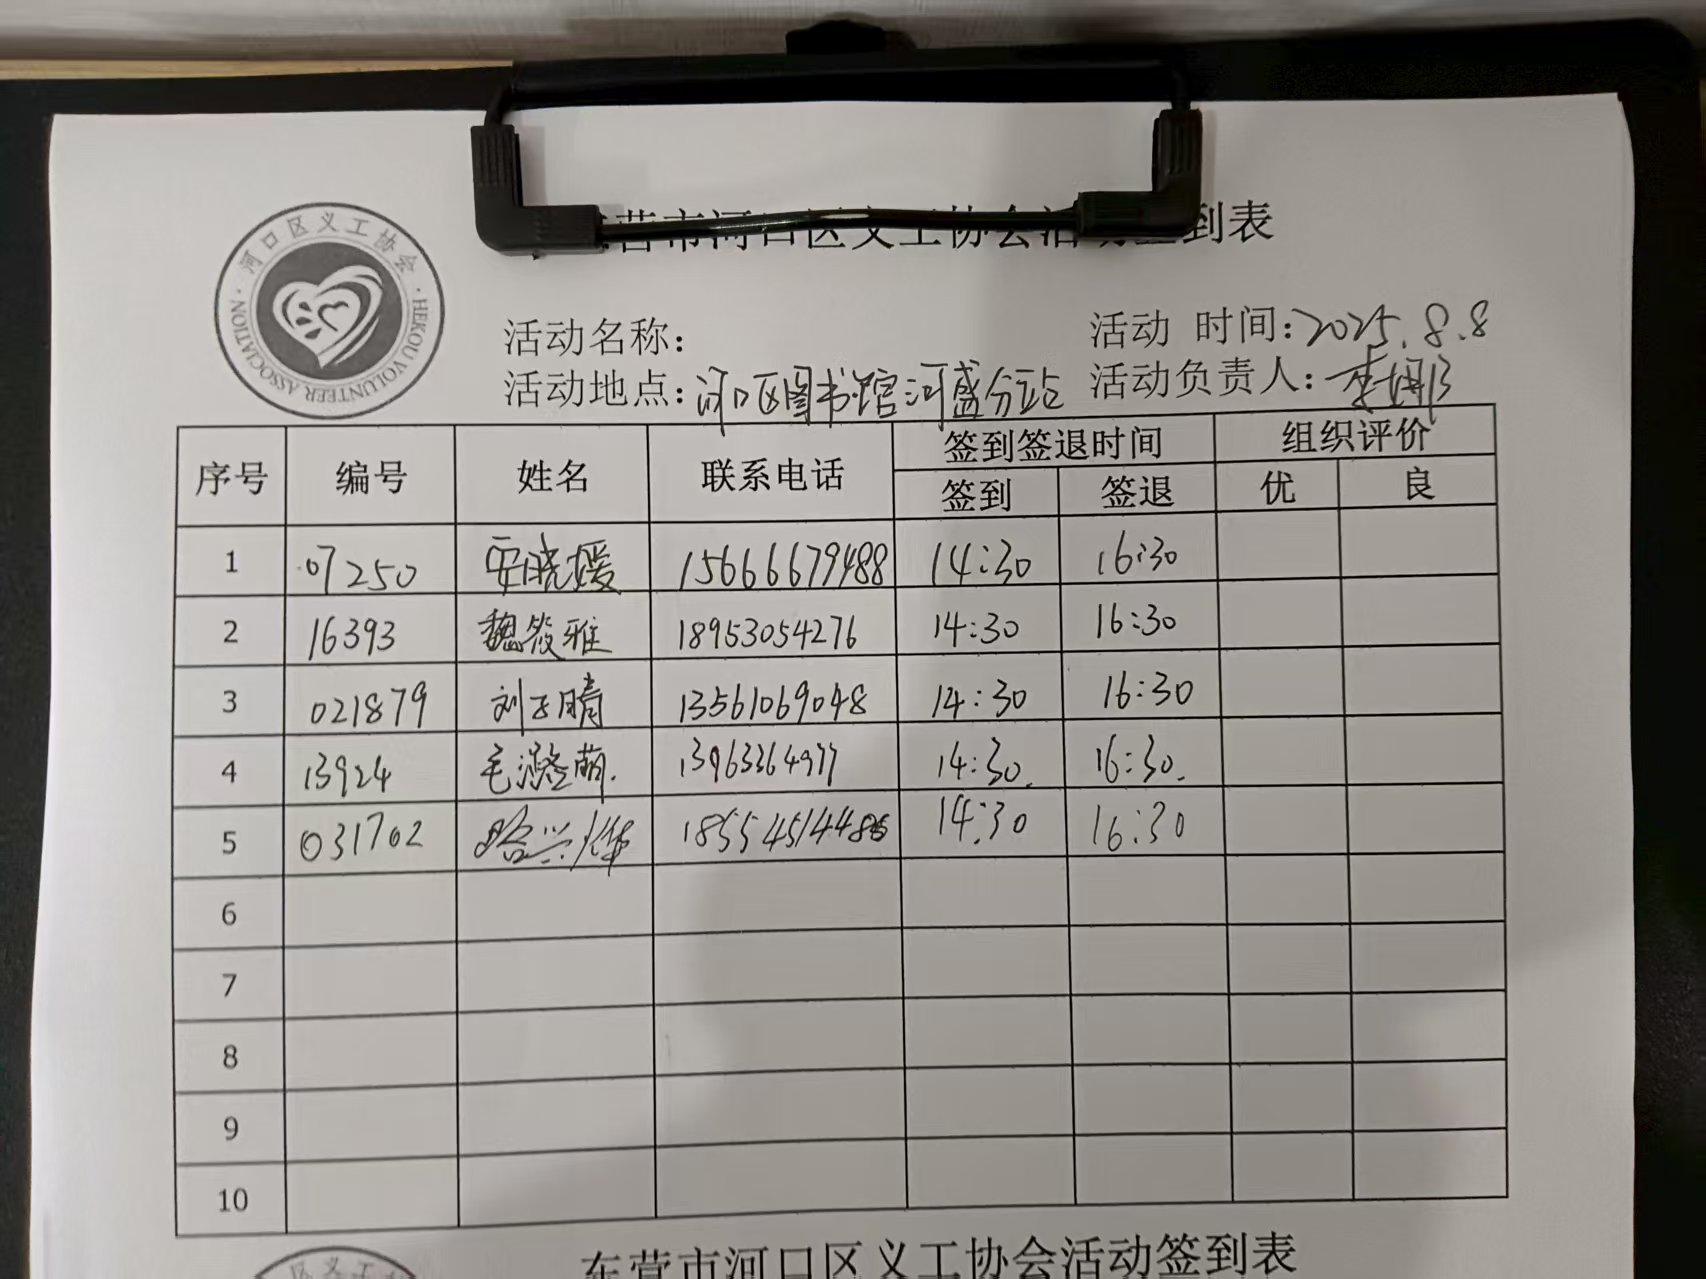 东营市河口区义工协会活动签到表
河口区义工协会
HEKOU VOLUNTEER ASSOCIATION
活动名称: 活动 时间:2025.8.8
活动地点:河口区图书馆河盛分站 活动负责人:李娜
序号 编号 姓名 联系电话 签到签退时间 组织评价
签到 签退 优 良
1 07250 安晓媛 15666679488 14:30 16:30
2 16393 魏筱雅 18953054276 14:30 16:30
3 021879 刘子晴 13561069048 14:30 16:30
4 13924 毛潞萌. 13963364977 14:30. 16:30.
5 031702 路兴 14:30 16:30
6
7
8
9
10
区义工协
东营市河口区义工协会活动签到表